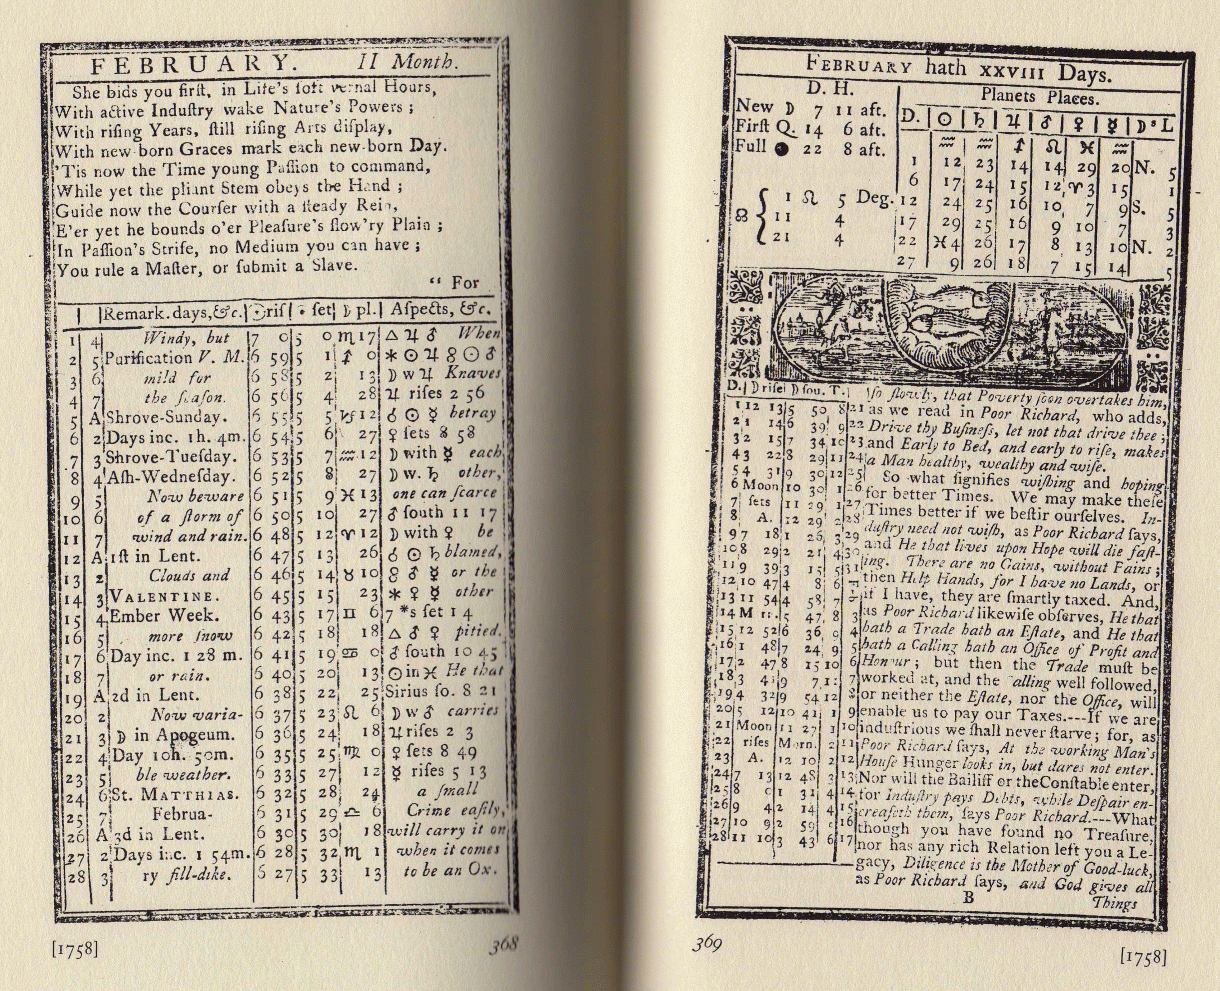 FEBRUARY. II Month.
She bids you firſt, in Life's ſoft vernal Hours,
With active Induſtry wake Nature's Powers ;
With riſing Years, ſtill riſing Arts diſplay,
With new-born Graces mark each new-born Day.
'Tis now the Time young Paſſion to command,
While yet the pliant Stem obeys the Hand ;
Guide now the Courſer with a ſteady Rein,
E'er yet he bounds o'er Pleaſure's flow'ry Plain ;
In Paſſion's Strife, no Medium you can have ;
You rule a Maſter, or ſubmit a Slave.
“ For
Remark. days, &c. ☉riſ ſet ☽ pl. Aſpects, &c.
1 4 Windy, but 7 0 5 0 ♏ 17 △ ♃ ♂ When
2 5 Purification V. M. 6 59 5 1 ♐ 0 ✶ ☉ ♃ ☍ ☉ ♂
3 6 mild for 6 58 5 2 13 ☽ w ♃ Knaves
4 7 the ſeaſon. 6 56 5 4 28 ♃ riſes 2 56
5 A Shrove-Sunday. 6 55 5 5 ♑ 12 ☌ ☉ ☿ betray
6 2 Days inc. 1h. 4m. 6 54 5 6 27 ♀ ſets 8 58
7 3 Shrove-Tueſday. 6 53 5 7 ♒ 12 ☽ with ☿ each
8 4 Aſh-Wedneſday. 6 52 5 8 27 ☽ w. ♄ other,
9 5 Now beware 6 51 5 9 ♓ 13 one can ſcarce
10 6 of a ſtorm of 6 50 5 10 27 ♂ ſouth 11 17
11 7 wind and rain. 6 48 5 12 ♈ 12 ☽ with ♀ be
12 A 1ſt in Lent. 6 47 5 13 26 ☌ ☉ ♄ blamed,
13 2 Clouds and 6 46 5 14 ♉ 10 ☍ ♂ ☿ or the
14 3 VALENTINE. 6 45 5 15 23 ✶ ♀ ☿ other
15 4 Ember Week. 6 43 5 17 ♊ 6 7 *s ſet 1 4
16 5 more ſnow 6 42 5 18 18 △ ♂ ♀ pitied.
17 6 Day inc. 1 28 m. 6 41 5 19 ♋ 0 ♂ ſouth 10 45
18 7 or rain. 6 40 5 20 13 ☉ in ♓ He that
19 A 2d in Lent. 6 38 5 22 25 Sirius ſo. 8 21
20 2 Now varia- 6 37 5 23 ♌ 6 ☽ w ♂ carries
21 3 ☽ in Apogeum. 6 36 5 24 18 ♃ riſes 2 3
22 4 Day 10h. 50m. 6 35 5 25 ♍ 0 ♀ ſets 8 49
23 5 ble weather. 6 33 5 27 12 ☿ riſes 5 13
24 6 St. MATTHIAS. 6 32 5 28 24 a ſmall
25 7 Februa- 6 31 5 29 ♎ 6 Crime eaſily,
26 A 3d in Lent. 6 30 5 30 18 will carry it on
27 2 Days inc. 1 54m. 6 28 5 32 ♏ 1 when it comes
28 3 ry fill-dike. 6 27 5 33 13 to be an Ox.
[1758] 368
FEBRUARY hath XXVIII Days.
D. H.
New ☽ 7 11 aft.
Firſt Q. 14 6 aft.
Full ● 22 8 aft.
☊ 1 ♌ 5 Deg.
11 4
21 4
Planets Places.
D. ☉ ♄ ♃ ♂ ♀ ☿ ☽'s L
♒ ♒ ♐ ♌ ♓ ♒
1 12 23 14 14 29 20 N. 5
6 17 24 15 12 ♈ 3 15 1
12 24 25 16 10 7 9 S. 5
17 29 25 16 9 10 7 3
22 ♓ 4 26 17 8 13 10 N. 2
27 9 26 18 7 15 14 5
D. ☽ riſe ☽ ſou. T.
1 12 13 5 50 8
2 1 14 6 39 9
3 2 15 7 34 10
4 3 22 8 29 11
5 4 31 9 30 12
6 Moon 10 30 1
7 ſets 11 29 1
8 A. 12 29 2
9 7 18 1 26 3
10 8 29 2 21 4
11 9 39 3 15 5
12 10 47 4 8 6
13 11 54 4 58 7
14 M 5 47 8
15 12 52 6 36 9
16 1 48 7 24 9
17 2 47 8 15 10
18 3 41 9 7
19 4 32 9 54 12
20 5 12 10 41 1
21 Moon 11 27 1
22 riſes Morn. 2
23 A. 12 10 2
24 7 13 12 48 3
25 8 1 31 4
26 9 4 2 14 4
27 10 9 2 59
28 11 10 3 43 6
ſo ſlowly, that Poverty ſoon overtakes him,
as we read in Poor Richard, who adds,
Drive thy Buſineſs, let not that drive thee ;
and Early to Bed, and early to riſe, makes
a Man healthy, wealthy and wiſe.
So what ſignifies wiſhing and hoping
for better Times. We may make theſe
Times better if we beſtir ourſelves. In-
duſtry need not wiſh, as Poor Richard ſays,
and He that lives upon Hope will die faſt-
ing. There are no Gains, without Pains ;
then Help Hands, for I have no Lands, or
if I have, they are ſmartly taxed. And,
as Poor Richard likewiſe obſerves, He that
hath a Trade hath an Eſtate, and He that
hath a Calling hath an Office of Profit and
Honour ; but then the Trade muſt be
worked at, and the Calling well followed,
or neither the Eſtate, nor the Office, will
enable us to pay our Taxes.----If we are
induſtrious we ſhall never ſtarve ; for, as
Poor Richard ſays, At the working Man's
Houſe Hunger looks in, but dares not enter.
Nor will the Bailiff or the Conſtable enter,
for Induſtry pays Debts, while Deſpair en-
creaſeth them, ſays Poor Richard.----What
though you have found no Treaſure,
nor has any rich Relation left you a Le-
gacy, Diligence is the Mother of Good-luck,
as Poor Richard ſays, and God gives all
B Things
369 [1758]